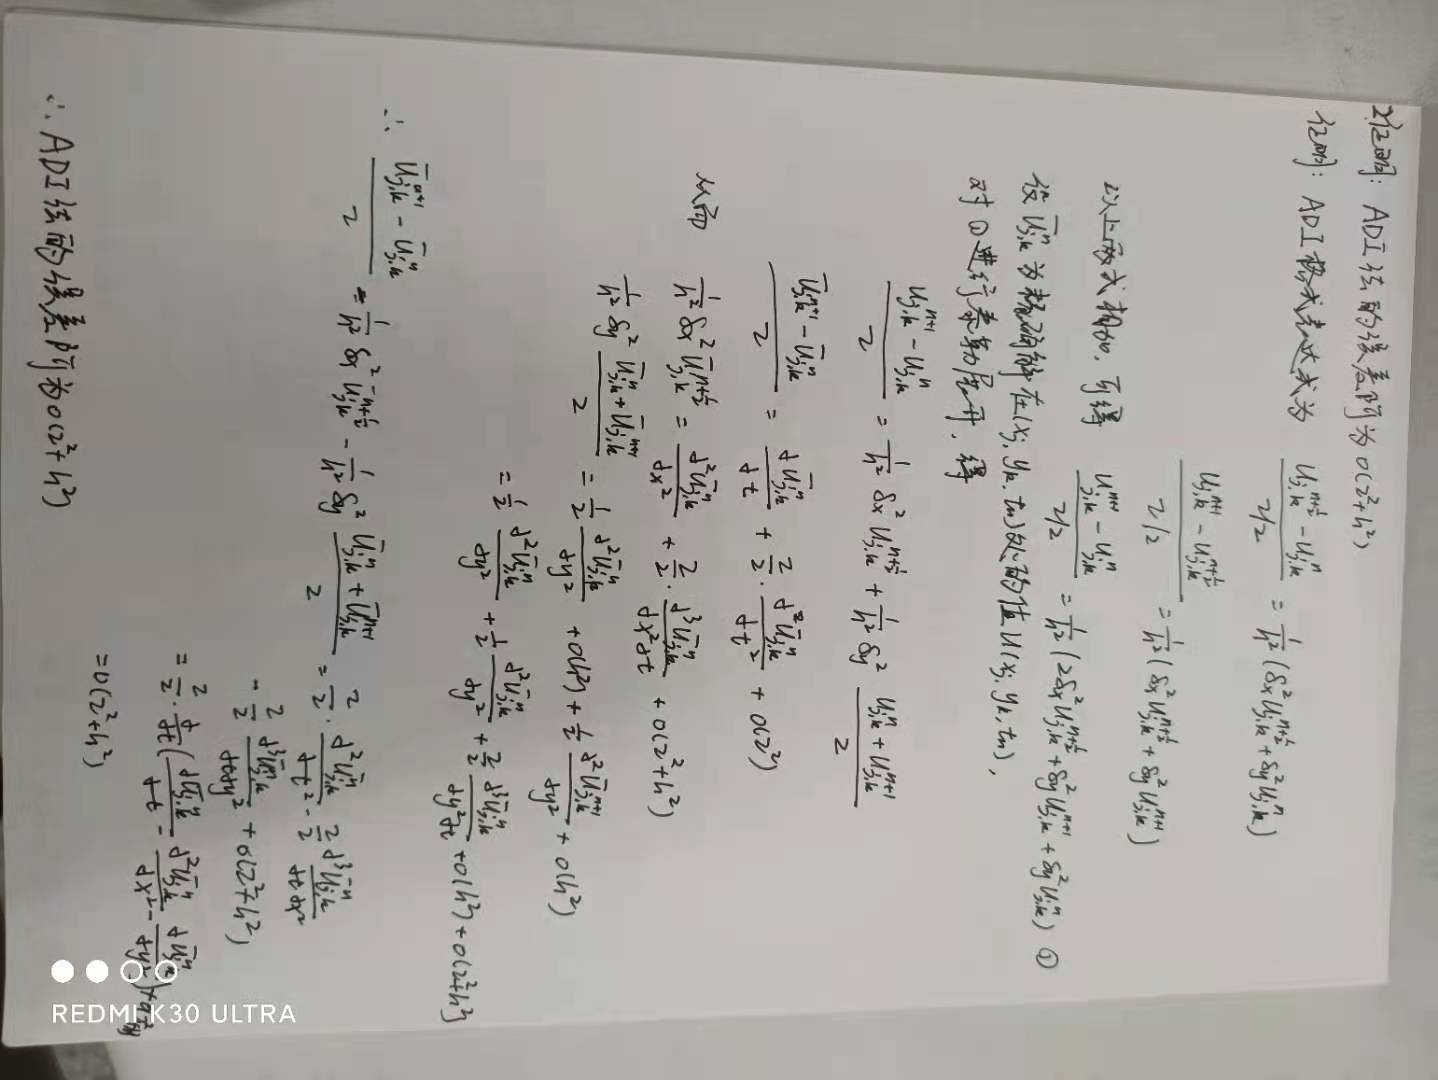 2证明: ADI法的误差阶为O(τ²+h²)
证明: ADI格式表达式为 (U_{j,k}^{n+1/2} - U_{j,k}^n)/(τ/2) = 1/h² (δx² U_{j,k}^{n+1/2} + δy² U_{j,k}^n)
(U_{j,k}^{n+1} - U_{j,k}^{n+1/2})/(τ/2) = 1/h² (δx² U_{j,k}^{n+1/2} + δy² U_{j,k}^{n+1})
以上两式相加, 可得 (U_{j,k}^{n+1} - U_{j,k}^n)/(τ/2) = 1/h² (2δx² U_{j,k}^{n+1/2} + δy² U_{j,k}^{n+1} + δy² U_{j,k}^n) ①
设 Ū_{j,k}^n 为精确解在(xj, yk, tn)处的值U(xj, yk, tn),
对①进行泰勒展开, 得
(U_{j,k}^{n+1} - U_{j,k}^n)/τ = 1/h² δx² U_{j,k}^{n+1/2} + 1/h² δy² (U_{j,k}^n + U_{j,k}^{n+1})/2
(Ū_{j,k}^{n+1} - Ū_{j,k}^n)/τ = ∂Ū_{j,k}^n/∂t + τ/2 · ∂²Ū_{j,k}^n/∂t² + O(τ²)
从而 1/h² δx² Ū_{j,k}^{n+1/2} = ∂²Ū_{j,k}^n/∂x² + τ/2 · ∂³Ū_{j,k}^n/∂x²∂t + O(τ²+h²)
1/h² δy² (Ū_{j,k}^n + Ū_{j,k}^{n+1})/2 = 1/2 ∂²Ū_{j,k}^n/∂y² + O(h²) + 1/2 ∂²Ū_{j,k}^{n+1}/∂y² + O(h²)
= 1/2 ∂²Ū_{j,k}^n/∂y² + 1/2 ∂²Ū_{j,k}^n/∂y² + τ/2 ∂³Ū_{j,k}^n/∂y²∂t + O(h²) + O(τ²+h²)
∴ (Ū_{j,k}^{n+1} - Ū_{j,k}^n)/τ = 1/h² δx² Ū_{j,k}^{n+1/2} - 1/h² δy² (Ū_{j,k}^n + Ū_{j,k}^{n+1})/2 = τ/2 · ∂²Ū_{j,k}^n/∂t² - τ/2 ∂³Ū_{j,k}^n/∂t∂x²
- τ/2 ∂³Ū_{j,k}^n/∂t∂y² + O(τ²+h²)
= τ/2 · ∂/∂t (∂Ū_{j,k}^n/∂t - ∂²Ū_{j,k}^n/∂x² -
= O(τ²+h²)
∴ ADI法的误差阶为O(τ²+h²)
REDMI K30 ULTRA